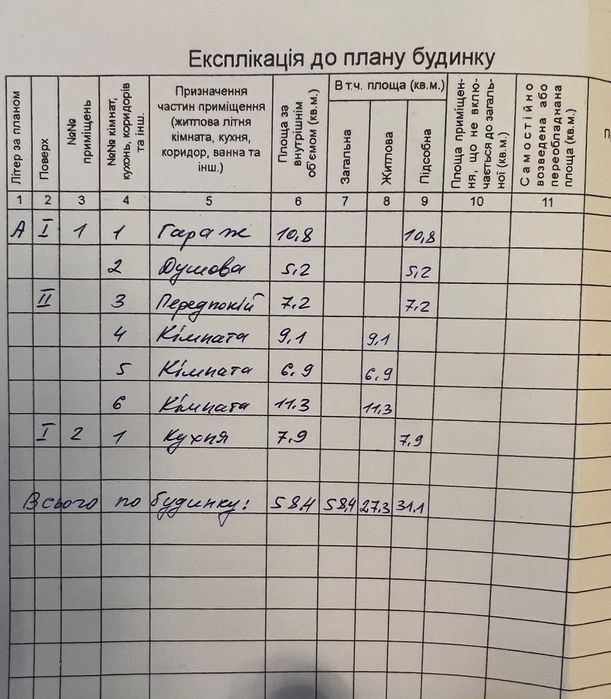 Експлікація до плану будинку
Літер за планом
Поверх
№№ приміщень
№№ кімнат, кухонь, коридорів та інш.
Призначення частин приміщення (житлова літня кімната, кухня, коридор, ванна та інш.)
Площа за внутрішнім об'ємом (кв.м.)
В т.ч. площа (кв.м.)
Загальна
Житлова
Підсобна
Площа приміщення, що не включається до загальної (кв.м.)
Самостійно возведена або переобладнана площа (кв.м.)
1 2 3 4 5 6 7 8 9 10 11
А I 1 1 Гараж 10,8 10,8
2 Душова 5,2 5,2
II 3 Передпокій 7,2 7,2
4 Кімната 9,1 9,1
5 Кімната 6,9 6,9
6 Кімната 11,3 11,3
I 2 1 Кухня 7,9 7,9
Всього по будинку: 58,4 58,4 27,3 31,1